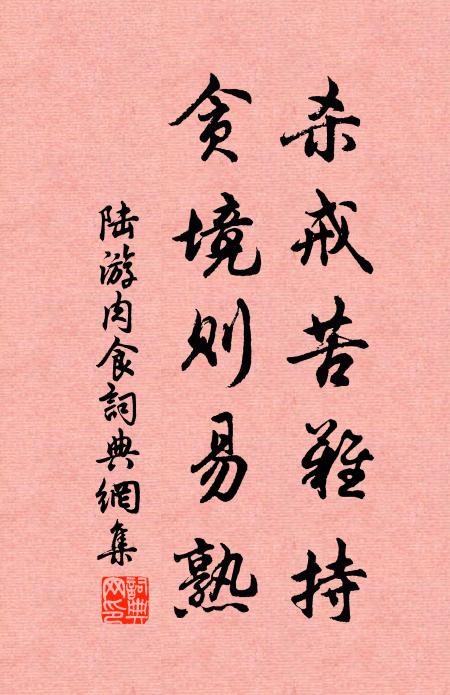 杀戒苦難持
貪境则易熟
陆游肉食詞典網集
詞典网印